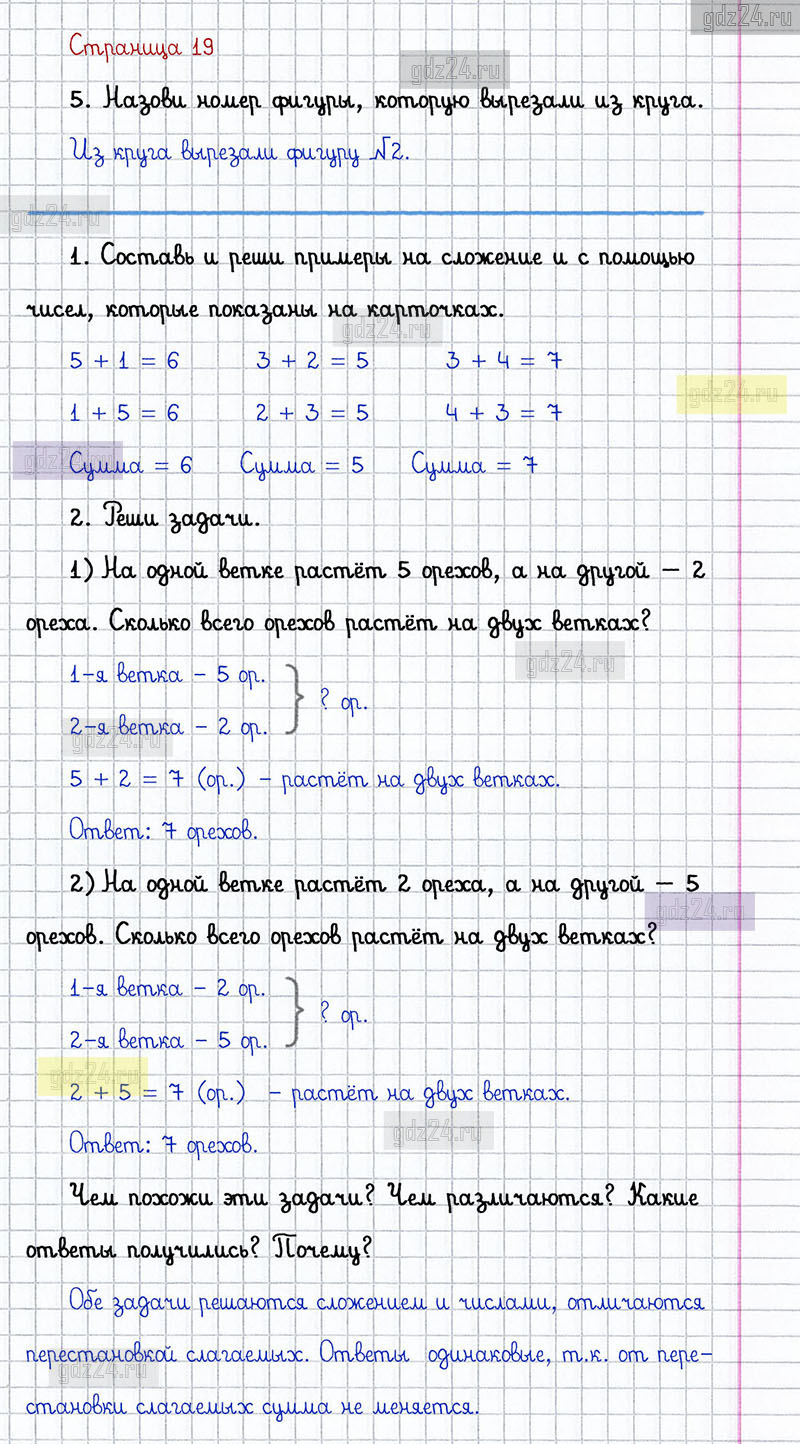 gdz24.ru
Страница 19
gdz24.ru
5. Назови номер фигуры, которую вырезали из круга.
Из круга вырезали фигуру №2.
gdz24.ru
1. Составь и реши примеры на сложение и с помощью
чисел, которые показаны на карточках.
gdz24.ru
5 + 1 = 6 3 + 2 = 5 3 + 4 = 7
gdz24.ru
1 + 5 = 6 2 + 3 = 5 4 + 3 = 7
gdz24.ru
Сумма = 6 Сумма = 5 Сумма = 7
2. Реши задачи.
1) На одной ветке растёт 5 орехов, а на другой – 2
ореха. Сколько всего орехов растёт на двух ветках?
gdz24.ru
1-я ветка – 5 ор.
? ор.
2-я ветка – 2 ор.
gdz24.ru
5 + 2 = 7 (ор.) – растёт на двух ветках.
Ответ: 7 орехов.
2) На одной ветке растёт 2 ореха, а на другой – 5
gdz24.ru
орехов. Сколько всего орехов растёт на двух ветках?
1-я ветка – 2 ор.
? ор.
2-я ветка – 5 ор.
gdz24.ru
2 + 5 = 7 (ор.) – растёт на двух ветках.
gdz24.ru
Ответ: 7 орехов.
Чем похожи эти задачи? Чем различаются? Какие
ответы получились? Почему?
Обе задачи решаются сложением и числами, отличаются
перестановкой слагаемых. Ответы одинаковые, т.к. от пере-
gdz24.ru
становки слагаемых сумма не меняется.